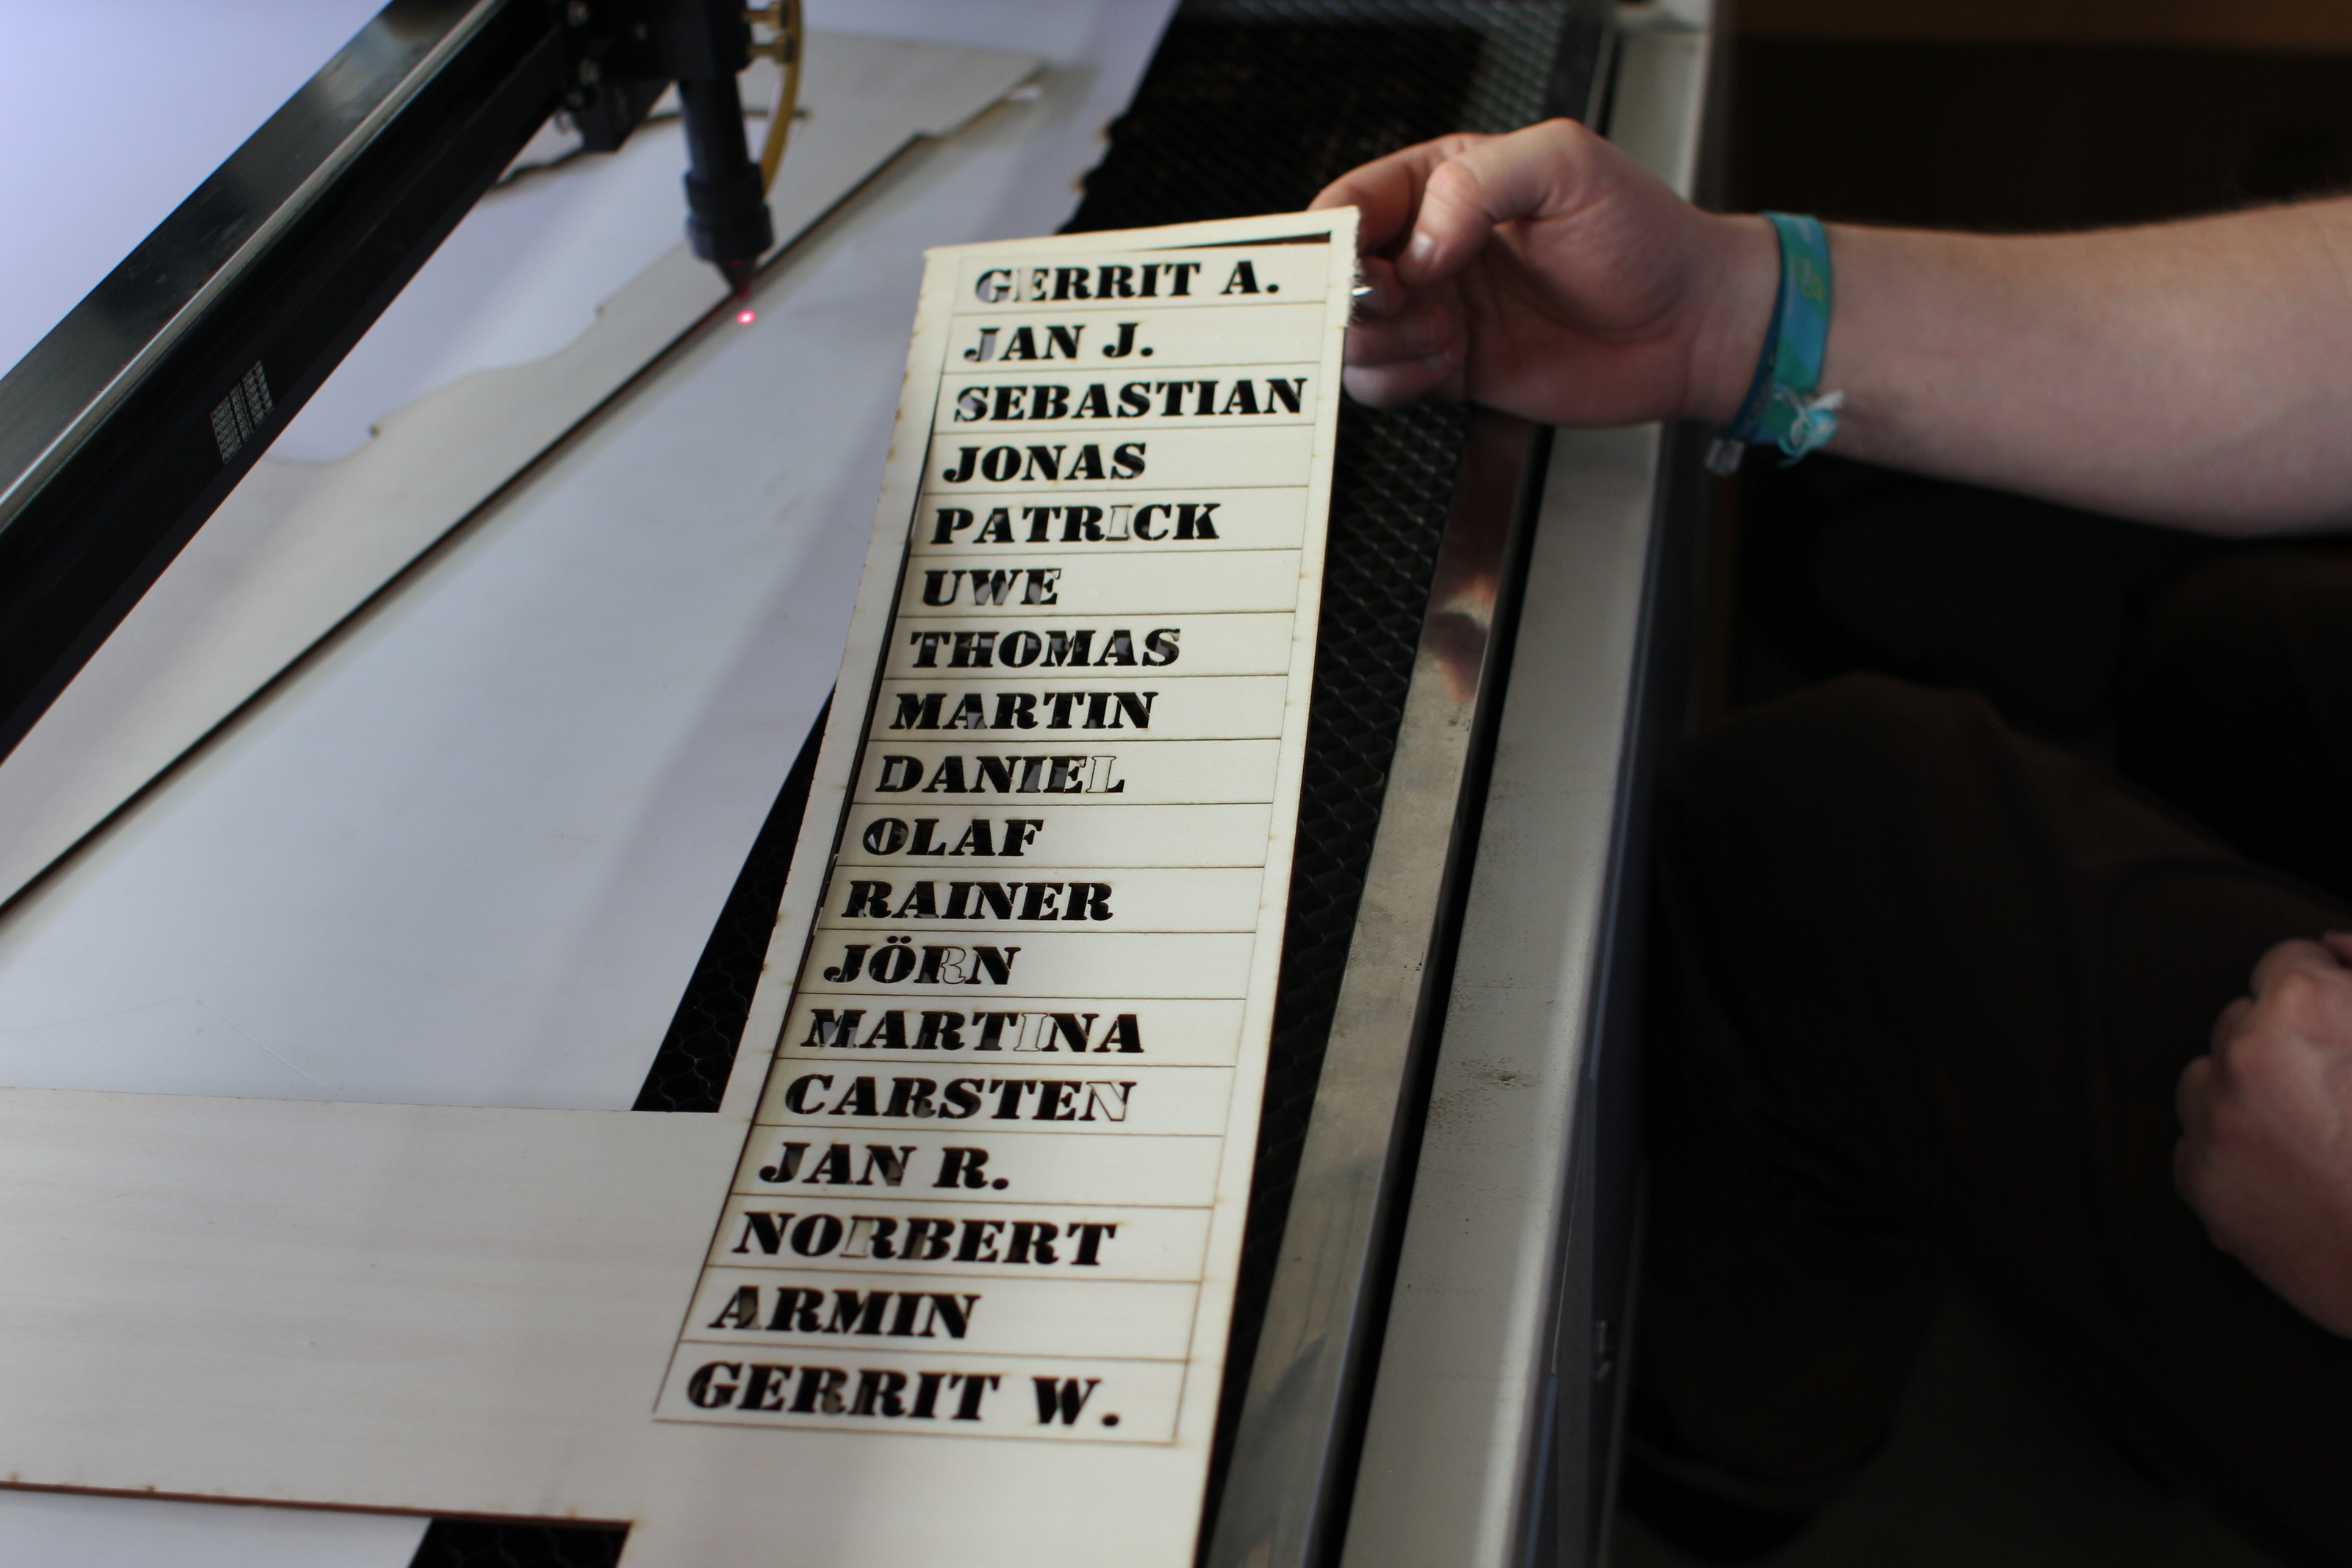 GERRIT A.
JAN J.
SEBASTIAN
JONAS
PATRICK
UWE
THOMAS
MARTIN
DANIEL
OLAF
RAINER
JÖRN
MARTINA
CARSTEN
JAN R.
NORBERT
ARMIN
GERRIT W.